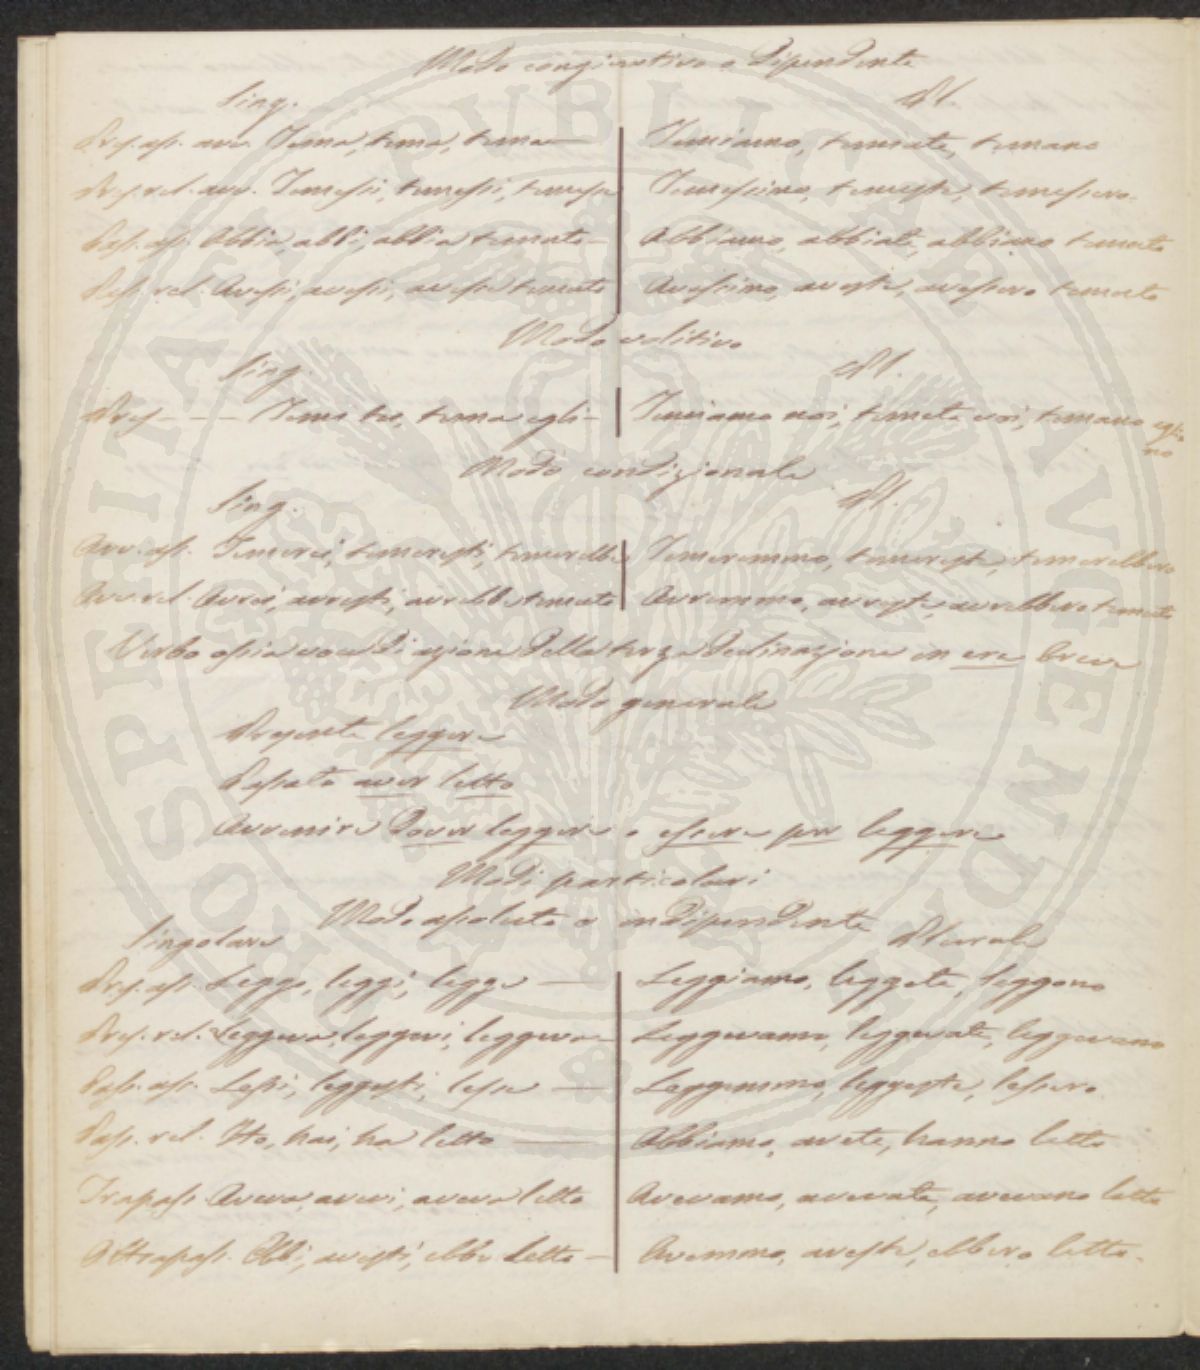 Modo congiuntivo o Dipendente
Sing. Pl.
Pres. ass. avv. Tema, tema, tema — Temiamo, temiate, temano
Pres. rel. avv. Temessi, temessi, temesse Temessimo, temeste, temessero.
Pass. ass. Abbia, abbi, abbia temuto — Abbiamo, abbiate, abbiano temuto
Pass. rel. Avessi, avessi, avesse temuto Avessimo, aveste, avessero temuto
Modo volitivo
Sing. Pl.
Pres — — — Temi tu, tema egli — Temiamo noi, temete voi, temano egli-
no
Modo condizionale
Sing. Pl.
Avv. ass. Temerei, temeresti, temerebbe Temeremmo, temereste, temerebbero
Avv. rel. Avrei, avresti, avrebbe temuto Avremmo, avreste, avrebbero temuto
Verbo ossia voce Di azione Della terza Declinazione in ere breve
Modo generale
Presente leggere
Passato aver letto
Avvenire Dover leggere o essere per leggere
Modi particolari
Modo assoluto o inDipendente
Singolare Plurale
Pres. ass. Leggo, leggi, legge — Leggiamo, leggete, leggono
Pres. rel. Leggeva, leggevi, leggeva — Leggevamo, leggevate, leggevano
Pass. ass. Lessi, leggesti, lesse — Leggemmo, leggeste, lessero.
Pass. rel. Ho, hai, ha letto — Abbiamo, avete, hanno letto
Trapass. Aveva, avevi, aveva letto Avevamo, avevate, avevano letto
Oltrapass. Ebbi, avesti, ebbe letto — Avemmo, aveste, ebbero letto.
PROSPERITATI PVBLICAE AVGENDAE